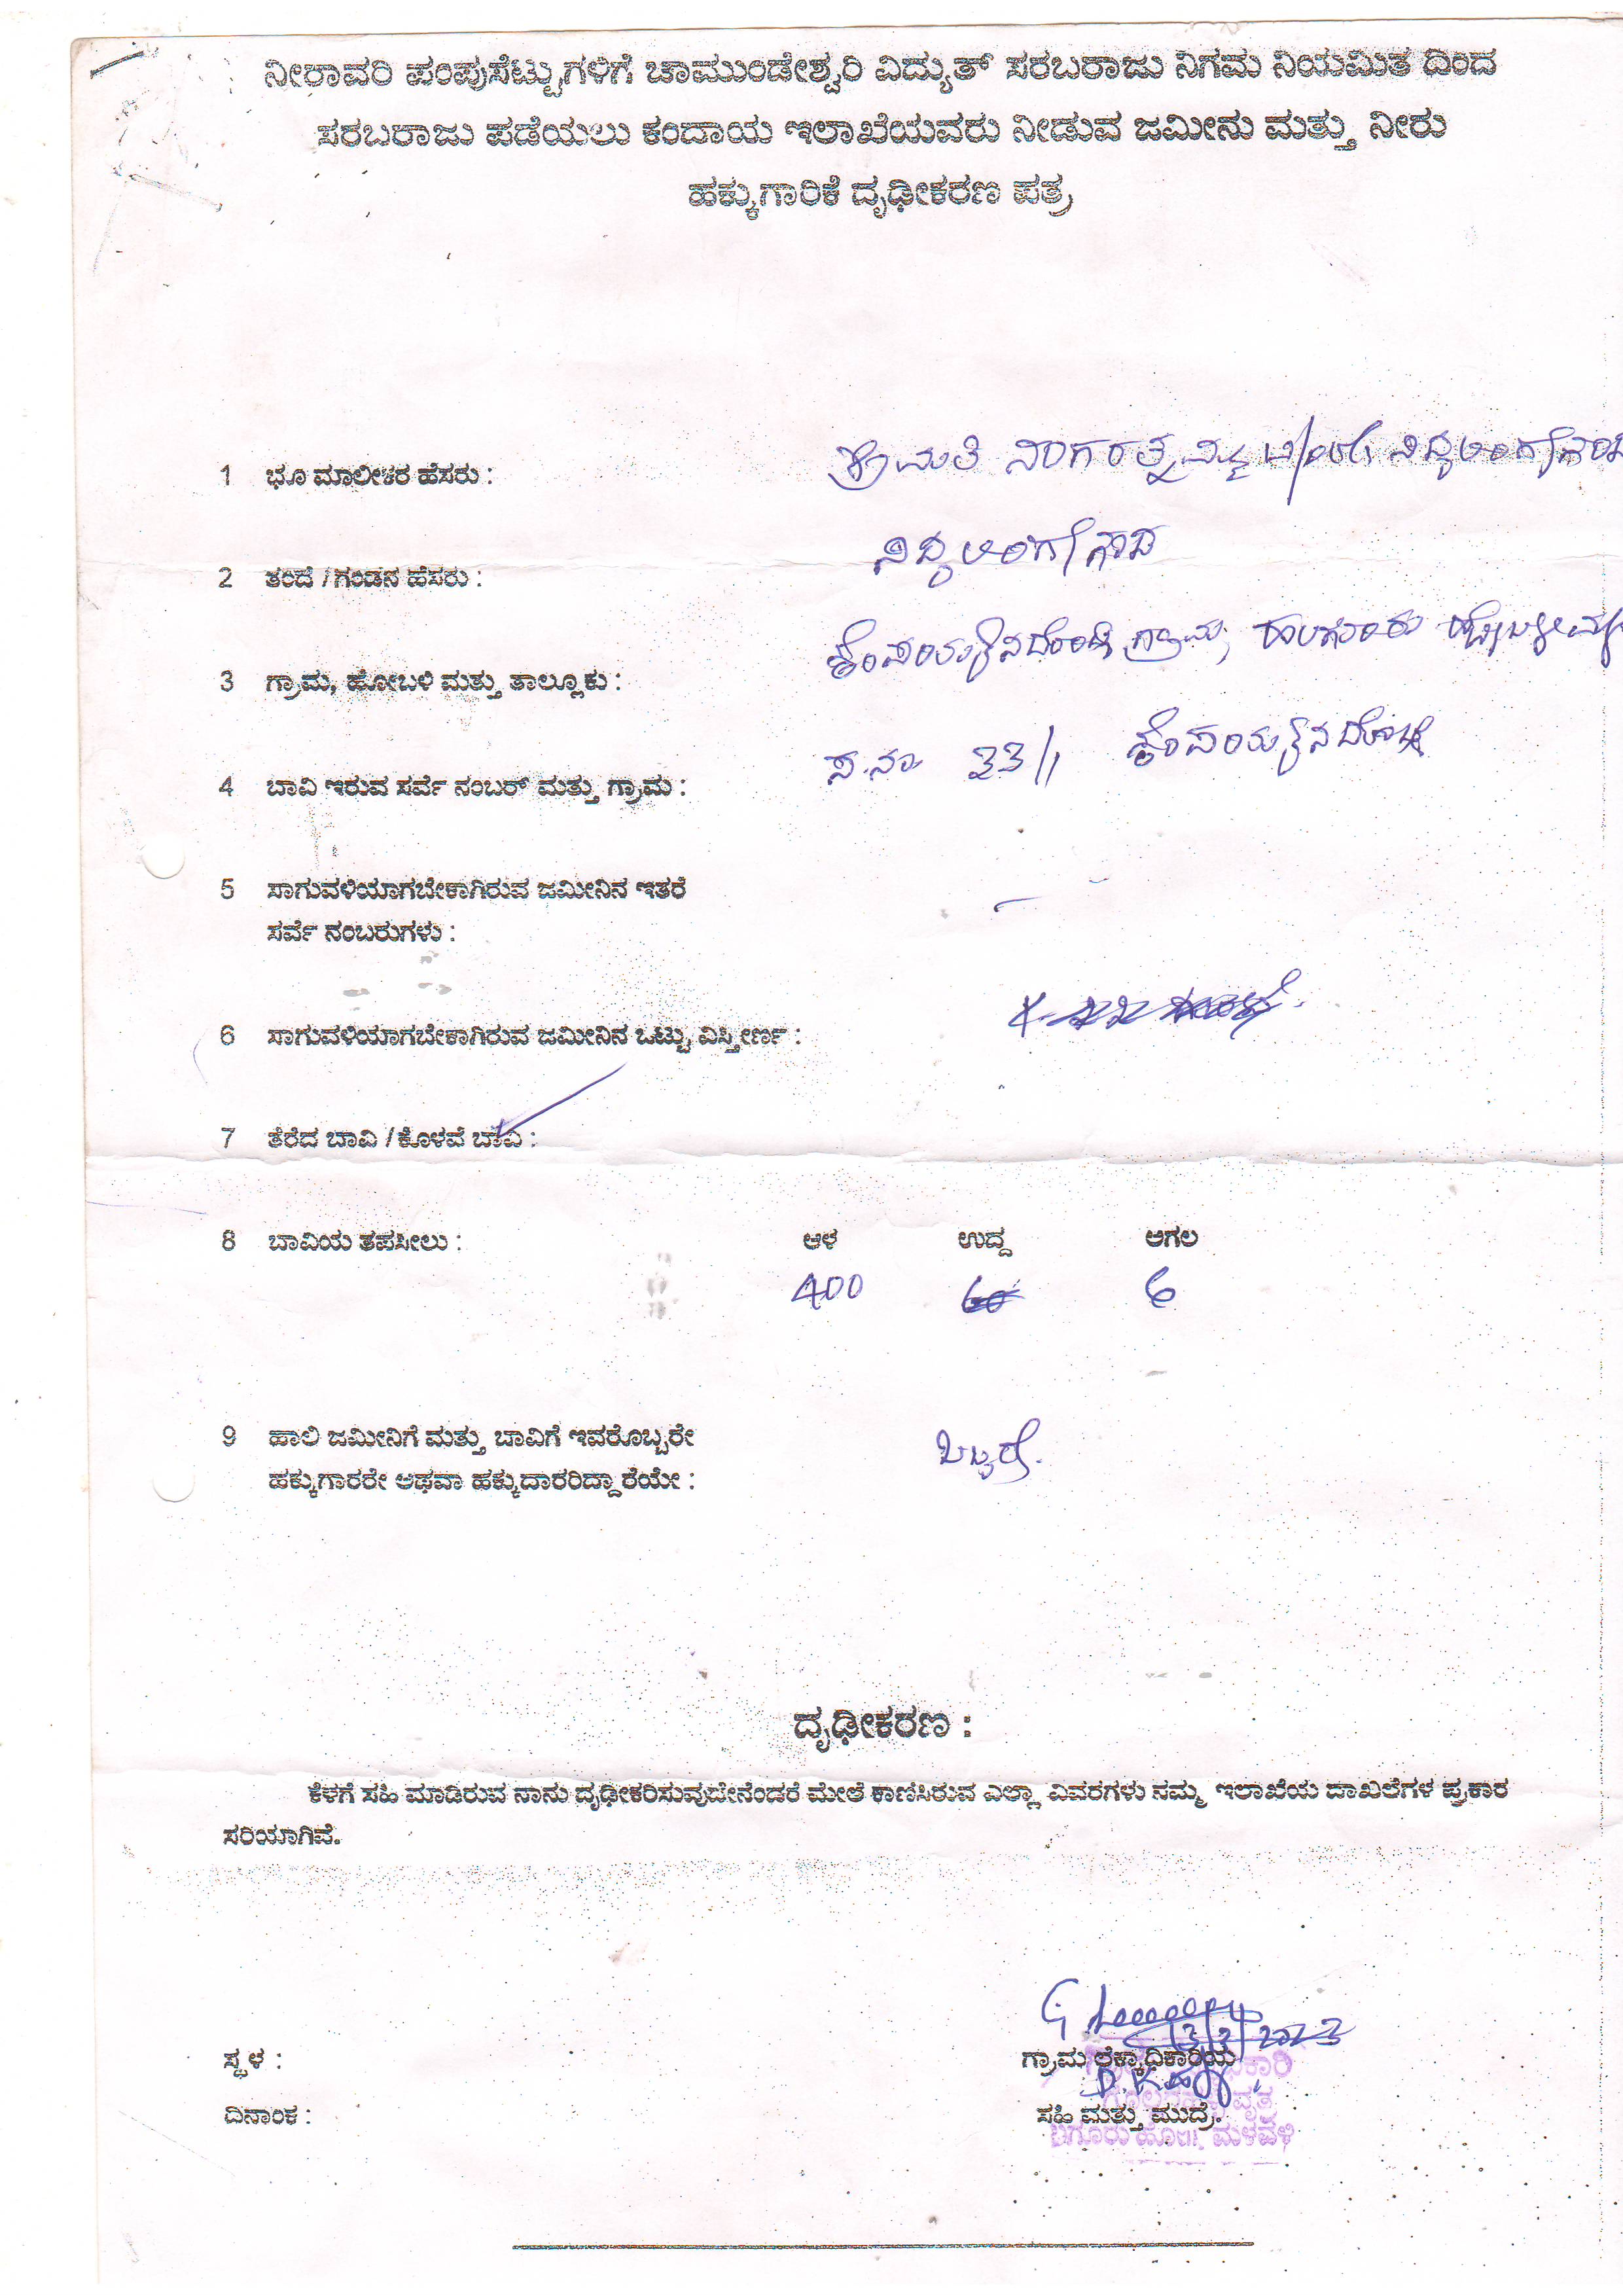 ನೀರಾವರಿ ಪಂಪುಸೆಟ್ಟುಗಳಿಗೆ ಚಾಮುಂಡೇಶ್ವರಿ ವಿದ್ಯುತ್ ಸರಬರಾಜು ನಿಗಮ ನಿಯಮಿತ ದಿಂದ
ಸರಬರಾಜು ಪಡೆಯಲು ಕಂದಾಯ ಇಲಾಖೆಯವರು ನೀಡುವ ಜಮೀನು ಮತ್ತು ನೀರು
ಹಕ್ಕುಗಾರಿಕೆ ದೃಢೀಕರಣ ಪತ್ರ
1 ಭೂ ಮಾಲೀಕರ ಹೆಸರು : ಶ್ರೀಮತಿ ನಾಗರತ್ನಮ್ಮ
2 ತಂದೆ / ಗಂಡನ ಹೆಸರು : ಸಿದ್ದಲಿಂಗೇಗೌಡ
3 ಗ್ರಾಮ, ಹೋಬಳಿ ಮತ್ತು ತಾಲ್ಲೂಕು : ಗ್ರಾಮ,
4 ಬಾವಿ ಇರುವ ಸರ್ವೆ ನಂಬರ್ ಮತ್ತು ಗ್ರಾಮ : ಸ.ನಂ 33/1
5 ಸಾಗುವಳಿಯಾಗಬೇಕಾಗಿರುವ ಜಮೀನಿನ ಇತರೆ
ಸರ್ವೆ ನಂಬರುಗಳು : -
6 ಸಾಗುವಳಿಯಾಗಬೇಕಾಗಿರುವ ಜಮೀನಿನ ಒಟ್ಟು ವಿಸ್ತೀರ್ಣ :
7 ತೆರೆದ ಬಾವಿ / ಕೊಳವೆ ಬಾವಿ :
8 ಬಾವಿಯ ತಪಸೀಲು : ಆಳ ಉದ್ದ ಅಗಲ
400 6
9 ಹಾಲಿ ಜಮೀನಿಗೆ ಮತ್ತು ಬಾವಿಗೆ ಇವರೊಬ್ಬರೇ
ಹಕ್ಕುಗಾರರೇ ಅಥವಾ ಹಕ್ಕುದಾರರಿದ್ದಾರೆಯೇ : ಒಬ್ಬರೆ.
ದೃಢೀಕರಣ :
ಕೆಳಗೆ ಸಹಿ ಮಾಡಿರುವ ನಾನು ದೃಢೀಕರಿಸುವುದೇನೆಂದರೆ ಮೇಲೆ ಕಾಣಿಸಿರುವ ಎಲ್ಲಾ ವಿವರಗಳು ನಮ್ಮ ಇಲಾಖೆಯ ದಾಖಲೆಗಳ ಪ್ರಕಾರ
ಸರಿಯಾಗಿವೆ.
ಸ್ಥಳ : ಗ್ರಾಮ ಲೆಕ್ಕಾಧಿಕಾರಿಯ
ದಿನಾಂಕ : ಸಹಿ ಮತ್ತು ಮುದ್ರೆ.
ಮಳವಳ್ಳಿ